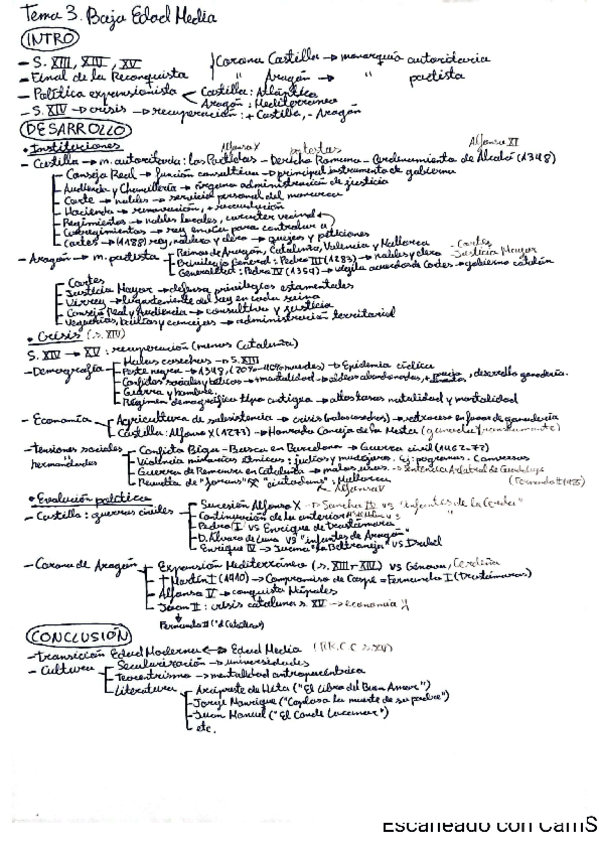 Tema 3. Baja Edad Media
INTRO
- S. XIII, XIV, XV
- Final de la Reconquista
Corona Castilla → monarquía autoritaria
" Aragón → " pactista
- Política expansionista Castilla: Atlántico
Aragón: Mediterráneo
- S. XIV → crisis → recuperación: + Castilla, - Aragón
DESARROLLO
• Instituciones
Alfonso X Alfonso XI
- Castilla → m. autoritaria: las Partidas - Derecho Romano - Ordenamiento de Alcalá (1348)
- Consejo Real → función consultiva → principal instrumento de gobierno
- Audiencia y Chancillería → órgano administración de justicia
- Corte → nobles → servicio personal del monarca
- Hacienda → + recaudación
- Regimientos → nobles locales, carácter vecinal
- Corregimientos → rey envía para controlar a
- Cortes → (1188) rey, nobleza y clero → quejas y peticiones
- Aragón → m. pactista
Reinos de Aragón, Cataluña, Valencia y Mallorca
Privilegio General: Pedro III (1283) → nobles y clero - Cortes
- Justicia Mayor
Generalitat: Pedro IV (1359) → vigila acuerdos de Cortes → gobierno catalán
- Cortes
- Justicia Mayor → defensa privilegios estamentales
- Virrey → lugarteniente del rey en cada reino
- Consejo Real y Audiencia → consultivo y justicia
- Veguerías, batllías y concejos → administración territorial
• Crisis (s. XIV)
S. XIV → XV: recuperación (menos Cataluña)
- Demografía
- Malas cosechas → s. XIII
- Peste negra → 1348, (20%-40% muertes) → Epidemia cíclica
- Conflictos sociales y bélicos → mortalidad → aldeas abandonadas, + desarrollo ganadería.
- Guerra y hambre
- Régimen demográfico tipo antiguo → altas tasas natalidad y mortalidad
- Economía
Agricultura de subsistencia → crisis (malas cosechas) → retroceso en favor de ganadería
Castilla: Alfonso X (1273) → Honrado Concejo de la Mesta (ganadería trashumante)
- Tensiones sociales
" hermandades
Conflicto Biga - Busca en Barcelona → Guerra civil (1462-72)
Violencia minorías étnicas: judíos y mudéjares. Ej: pogromos. Conversos
Guerra de Remensa en Cataluña → malos usos. → Sentencia Arbitral de Guadalupe
Revuelta de "forans" X "ciutadans": Mallorca
Alfonso V
• Evolución política
- Castilla: guerras civiles
Sucesión Alfonso X → Sancho IV vs "infantes de la Cerda"
Continuación de lu anterior
Pedro I vs Enrique de Trastámara
D. Álvaro de Luna vs "infantes de Aragón"
Enrique IV → Juana "la Beltraneja" vs Isabel
- Corona de Aragón
Expansión Mediterráneo (s. XIII-XIV) vs Génova, Cerdeña
† Martín I (1410) → Compromiso de Caspe = Fernando I (Trastámara)
Alfonso V → conquista Nápoles
Juan II: crisis catalana s. XV → economía
Fernando II ("el Católico")
CONCLUSIÓN
- Transición Edad Moderna ↔ Edad Media (RR.CC s. XV)
- Cultura
Secularización → universidades
Teocentrismo → mentalidad antropocéntrica
Literatura
- Arcipreste de Hita ("El Libro del Buen Amor")
- Jorge Manrique ("Coplas a la muerte de su padre")
- Juan Manuel ("El Conde Lucanor")
- etc.
Escaneado con CamS